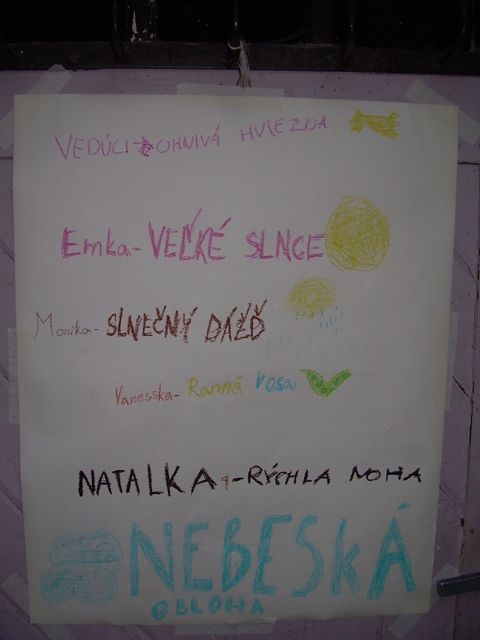 VEDÚCI-OHNIVÁ HVIEZDA
Emka-VEĽKÉ SLNCE
Monika-SLNEČNÝ DÁŽĎ
Vanesska-Ranná rosa
NATALKA-RÝCHLA NOHA
NEBESKÁ
OBLOHA